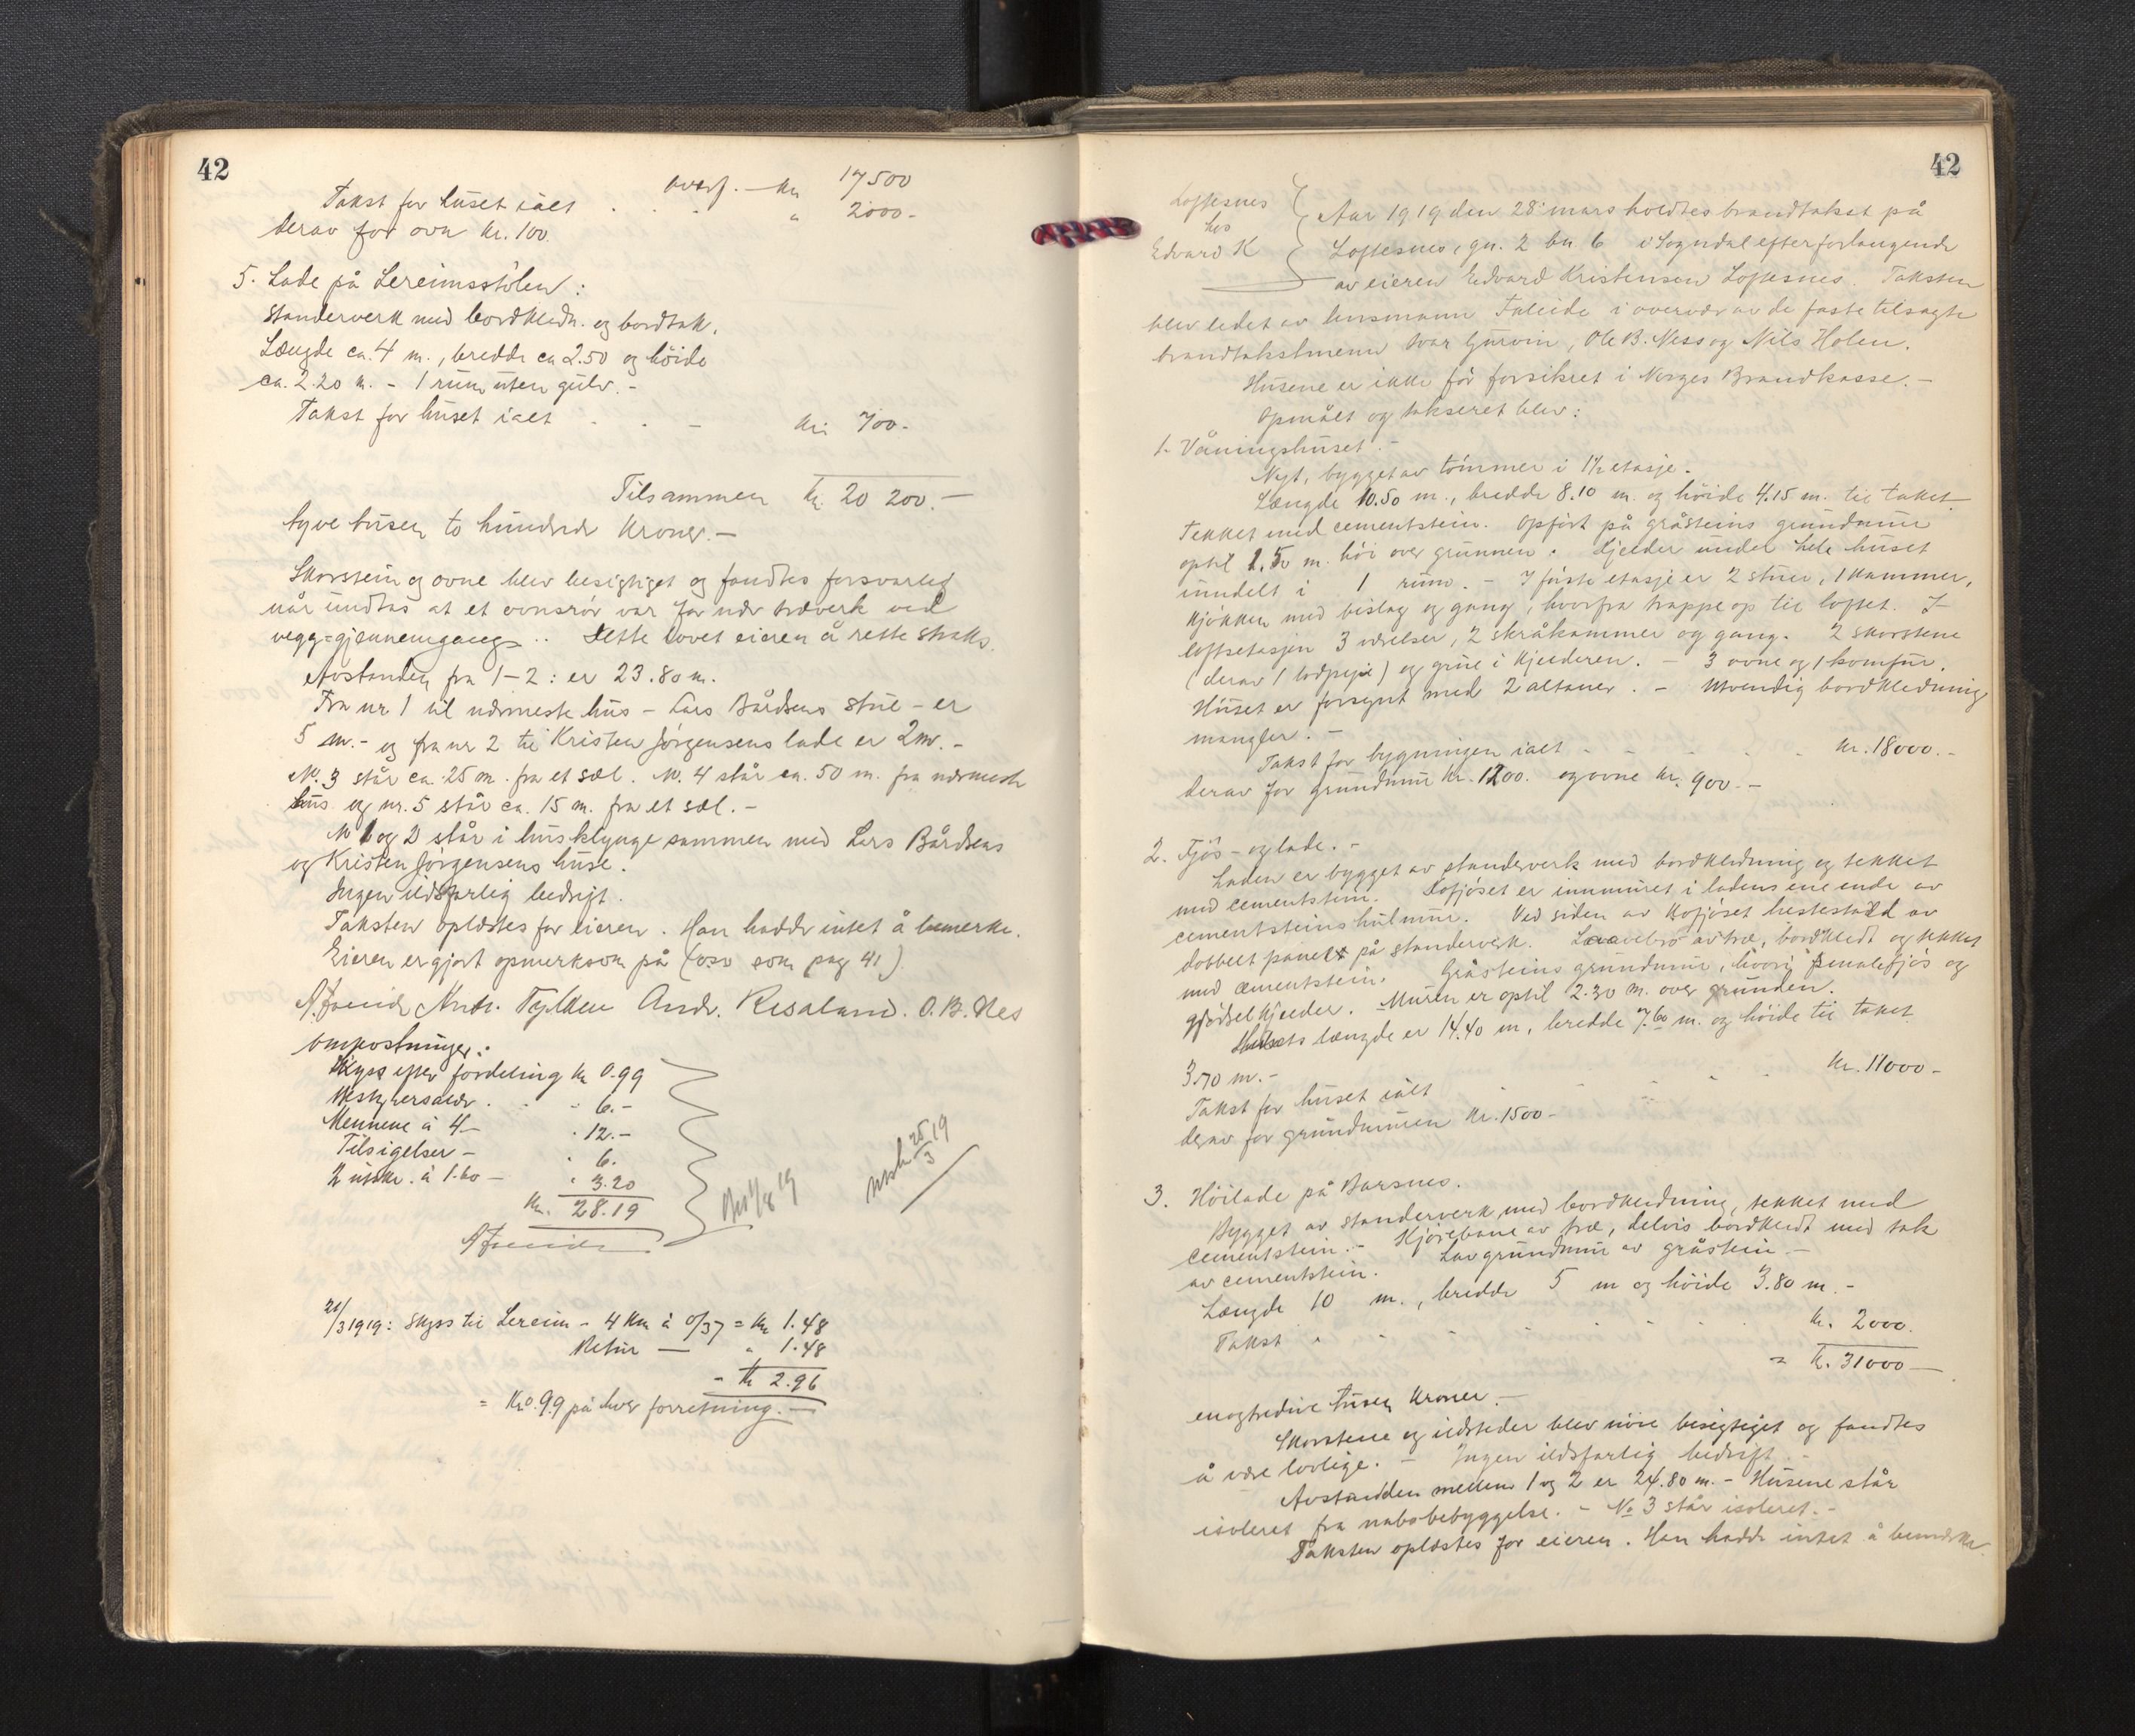 42
overf. — Kr 17500
Takst for huset ialt . . . " 2000.-
derav for ovn Kr. 100.
5. Lade på Lereimsstölen:
Standerverk med bordkledn. og bordtak.
Længde ca. 4 m., bredde ca 2.50 og höide
ca. 2.20 m. - 1 rum uten gulv. -
Takst for huset ialt . . - Kr. 700.-
Tilsammen Kr. 20 200.-
tyve tusen to hundrede Kroner. -
Skorstein og ovne blev besigtiget og fandtes forsvarlig
når undtas at et ovnsrör var for nær træverk ved
vegg=gjennemgang. Dette lovet eieren å rette straks.
Avstanden fra 1-2: er 23.80 m.
Fra nr 1 til nærmeste hus - Lars Bårdsens stue - er
5 m. - og fra nr 2 til Kristen Jörgensens lade er 2 m. -
Nr. 3 står ca. 25 m. fra et sæl. Nr. 4 står ca. 50 m. fra nærmeste
hus og nr. 5 står ca. 15 m. fra et sæl. -
Nr 1 og 2 står i husklynge sammen med Lars Bårdsens
og Kristen Jörgensens huse.
Ingen ildsfarlig bedrift.
Taksten oplæstes for eieren. Han hadde intet å bemerke.
Eieren er gjort opmerksom på (osv som pag 41)
A. Faleide Andr. Tylden Andr. Risaland. O. B. Nes
Omkostninger:
Skyss efter fordeling Kr 0.99
Bestyrersalær . . - 6.-
Mennene à 4.- . 12.-
Tilsigelser - . 6.
2 utskr. à 1.60 - " 3.20
Kr. 28.19
A Faleide
Bet 1/8 19
utsk 25/3 19
21/3 1919: Skyss til Lereim - 4 Km à 0/37 = Kr 1.48
Retur — " 1.48
- Kr 2.96
= Kr 0.99 på hver forretning. -
42
Loftesnes
hos
Edvard K
Aar 1919 den 28. mars holdtes brandtakst på
Loftesnes, gn. 2 bn 6 i Sogndal efter forlangende
av eieren Edvard Kristensen Loftesnes. Taksten
blev ledet av lensmann Faleide i overvær av de faste tilsagte
brandtakstmenn Ivar Gurvin, Ole B. Ness og Nils Holen.
Husene er ikke för forsikret i Norges Brandkasse. -
Opmålt og takseret blev:
1. Våningshuset. -
Nyt, bygget av tömmer i 1½ etasje.
Længde 10.50 m., bredde 8.10 m. og höide 4.15 m. til taket.
Tekket med cementstein. Opfört på gråsteins grundmur
optil 1.50 m. höi over grunnen. Kjelder under hele huset
inndelt i 1 rum. - I förste etasje er 2 stuer, 1 kammer,
kjökken med bislag og gang, hvorfra trappe op til loftet. I
loftsetasjen 3 værelser, 2 skråkammer og gang. 2 skorstene
(derav 1 lodpipe) og grue i kjelderen. - 3 ovne og 1 komfur.
Huset er forsynt med 2 altaner. - Utvendig bordkledning
mangler. -
Takst for bygningen ialt - - - . . Kr. 18000.-
derav for grundmur Kr. 1200. og ovne Kr. 900.-
2. Fjös- og lade. -
Laden er bygget av standerverk med bordkledning og tekket
med cementstein. Kofjöset er innmuret i ladens ene ende av
cementsteins hulmur. Ved siden av kofjöset hestestald av
dobbelt panelt på standerverk. Laavebro av træ, bordkledt og tekket
med cementstein. Gråsteins grundmur, hvori smalefjös og
gjödselkjelder. Muren er optil 2.30 m. over grunden.
Husets længde er 14.40 m, bredde 7.60 m. og höide til taket
3.70 m. -
Takst for huset ialt . - - . . Kr. 11000-
derav for grundmuren Kr. 1500-
3. Höilade på Barsnes.
Bygget av standerverk med bordkledning, tekket med
cementstein. - Kjörebane av træ, delvis bordkledt med tak
av cementstein. Lav grundmur av gråstein. -
Længde 10 m., bredde 5 m og höide 3.80 m. -
Takst . - - - - - - Kr. 2000.
= Kr. 31000 —
enogtredive tusen Kroner. -
Skorstene og ildsteder blev nöie besigtiget og fandtes
å være lovlige. - Ingen ildsfarlig bedrift. -
Avstanden mellem 1 og 2 er 24.80 m. - Husene står
isoleret fra nabobebyggelse. - No 3 står isoleret. -
Taksten oplæstes for eieren. Han hadde intet å bemerke.